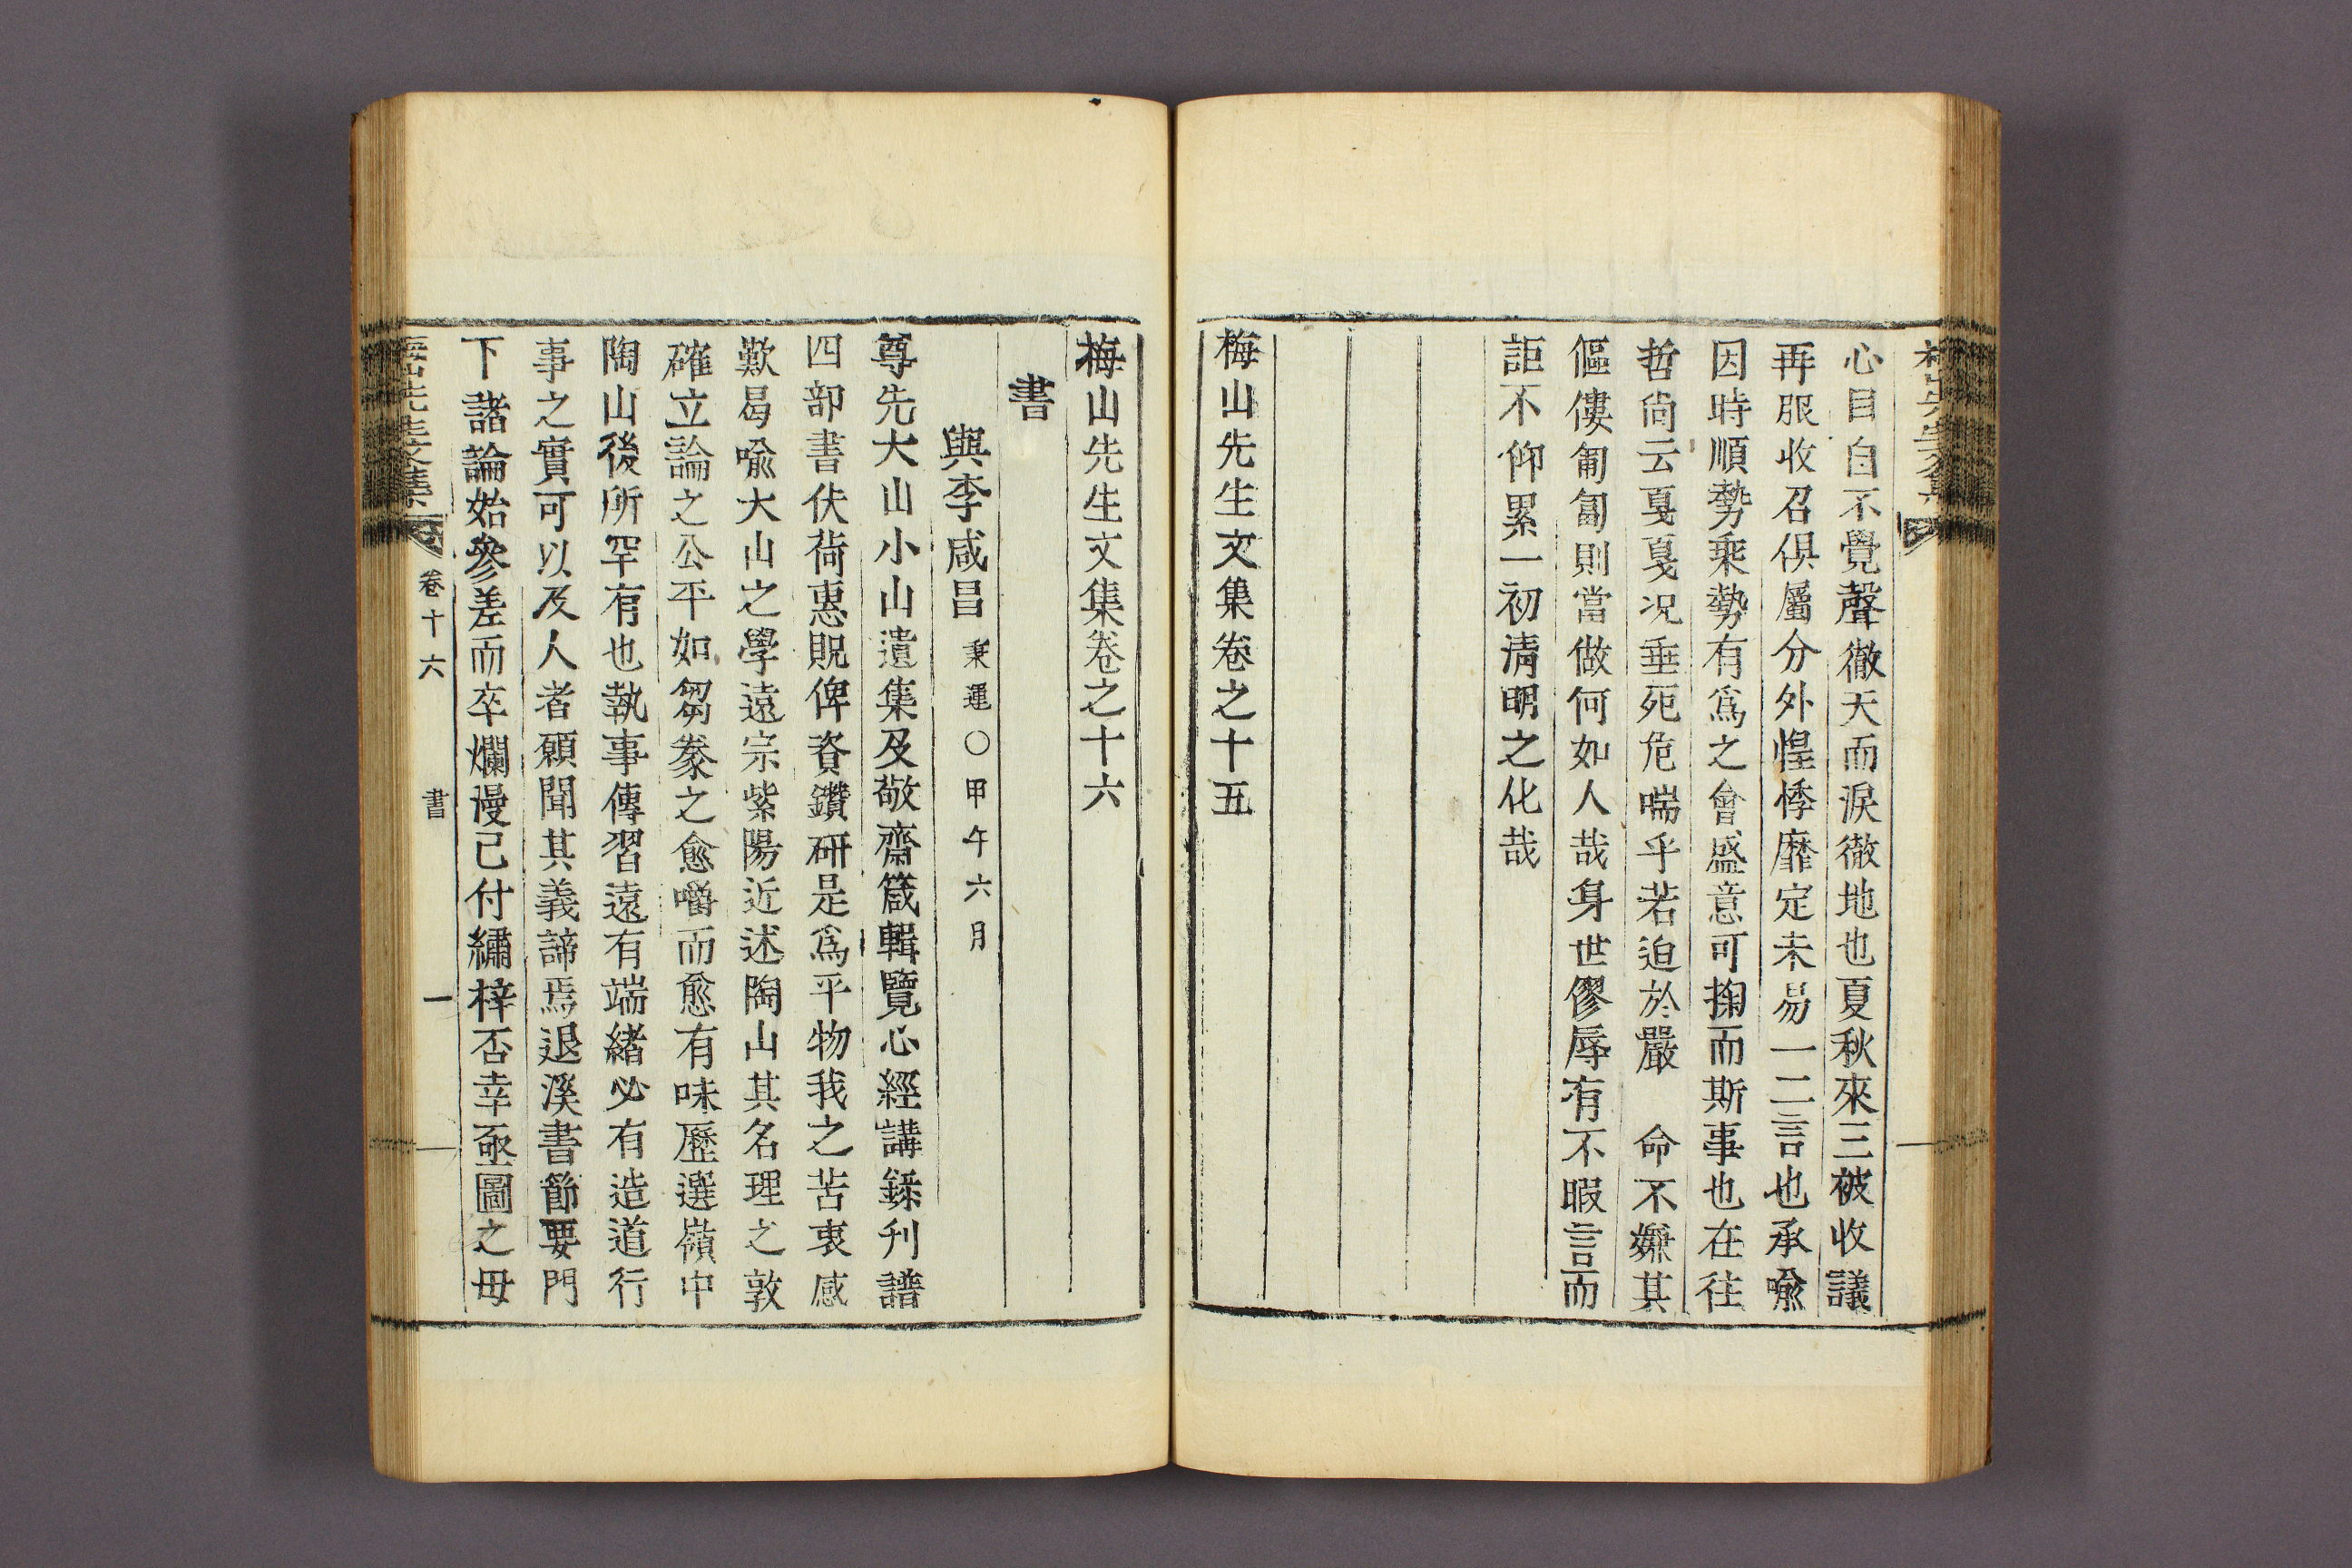 心目自不覺聲徹天而淚徹地也夏秋來三被收議
再服收召俱屬分外惶悸靡定未易一二言也承喩
因時順勢乘勢有爲之會盛意可掬而斯事也在往
哲尙云戛戛况垂死危喘乎若迫於嚴 命不嫌其
傴僂匍匐則當做何如人哉身世僇辱有不暇言而
詎不仰累一初淸明之化哉
梅山先生文集卷之十五
梅山先生文集卷之十六
書
與李咸昌秉運○甲午六月
尊先大山小山遺集及敬齋箴輯覽心經講錄刋譜
四部書伏荷惠貺俾資鑽硏是爲平物我之苦衷感
歎曷喩大山之學遠宗紫陽近述陶山其名理之敦
確立論之公平如芻豢之愈嚼而愈有味歷選嶺中
陶山後所罕有也執事傳習遠有端緖必有造道行
事之實可以及人者願聞其義諦焉退溪書節要門
下諸論始參差而卒爛漫已付繡梓否幸亟圖之毋
梅山先生文集 卷十六 書 一